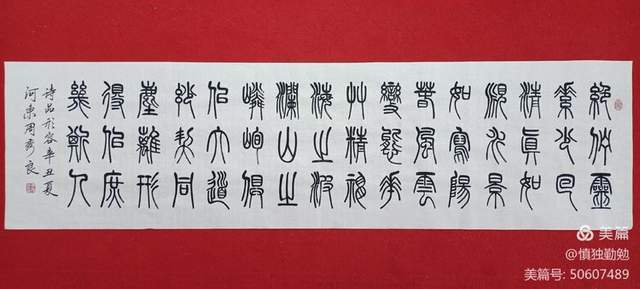 絕佇靈
素少回
清真如
覓水景
如寫陽
春風雲
變態華
艸精神
海之波
瀾山之
嶙峋俱
佀大道
妙契同
塵離形
得佀庶
幾斯人
诗品形容辛丑夏
河东周秀良
美篇
@慎独勤勉
美篇号: 50607489